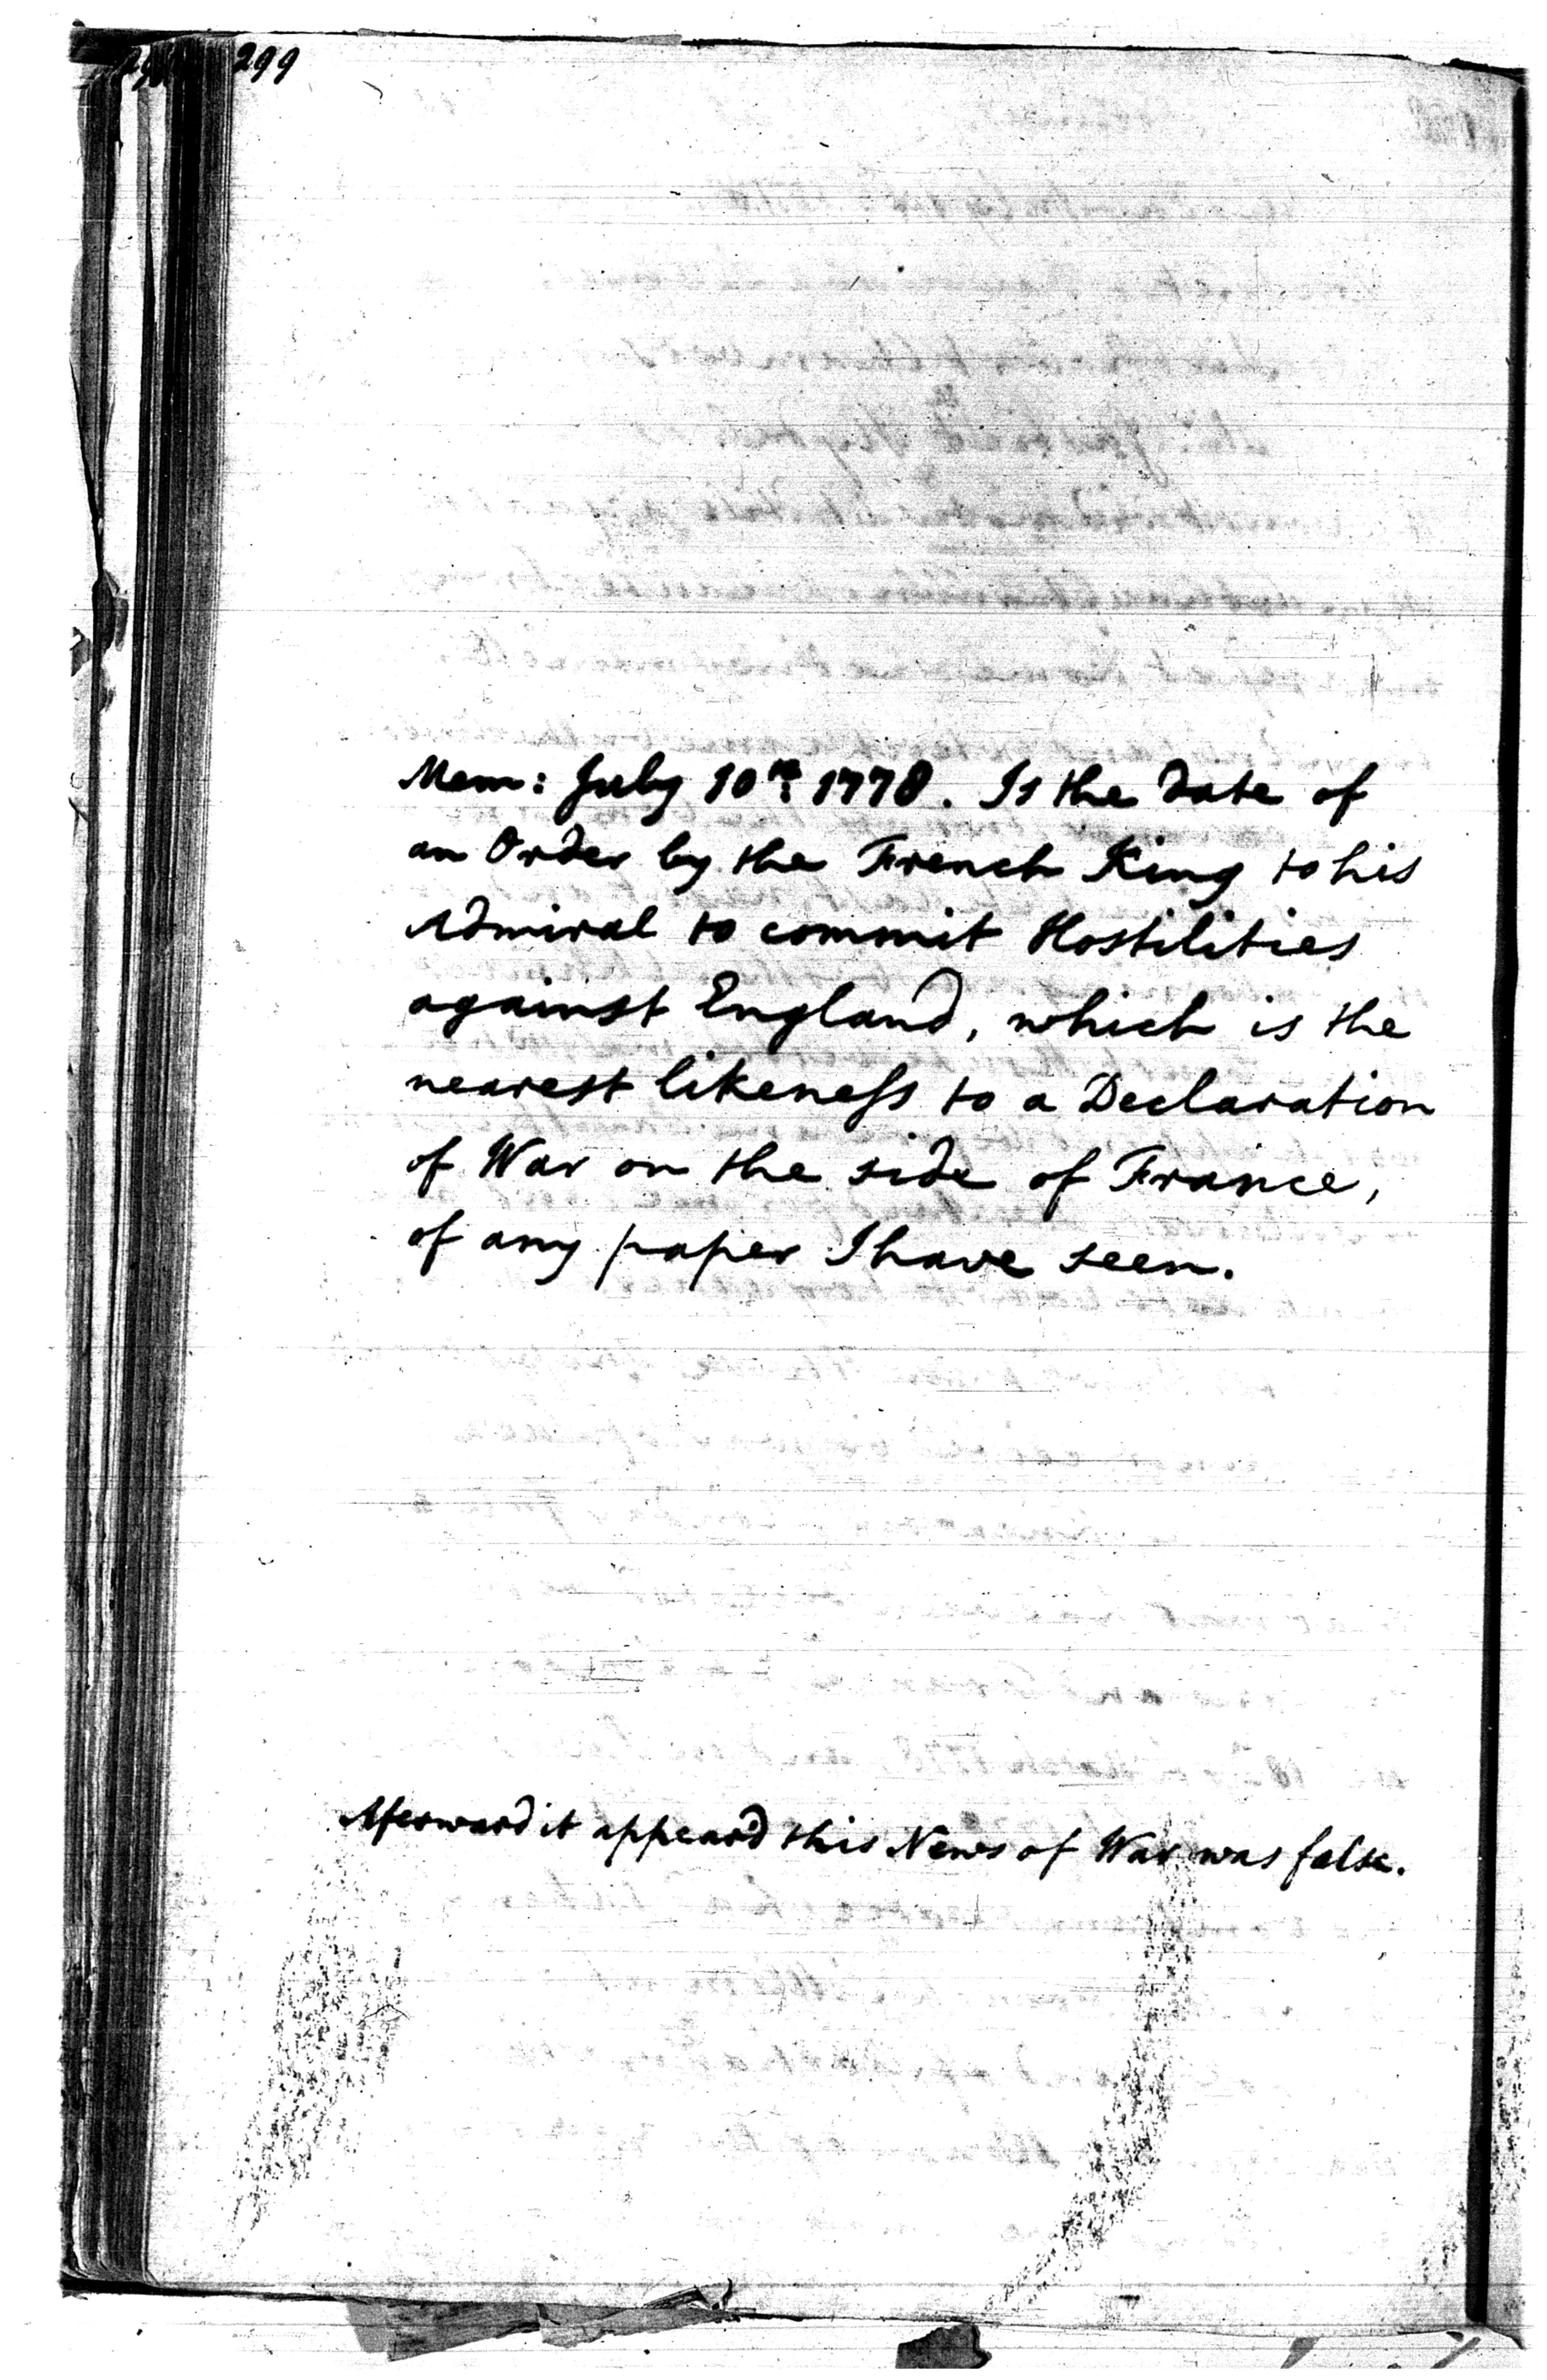 299
Mem: July 10th 1778. Is the Date of
an Order by the French King to his
Admiral to commit Hostilities
against England, which is the
nearest likeneſs to a Declaration
of War on the side of France,
of any paper I have seen.
Aferward it appeard this News of War was false.